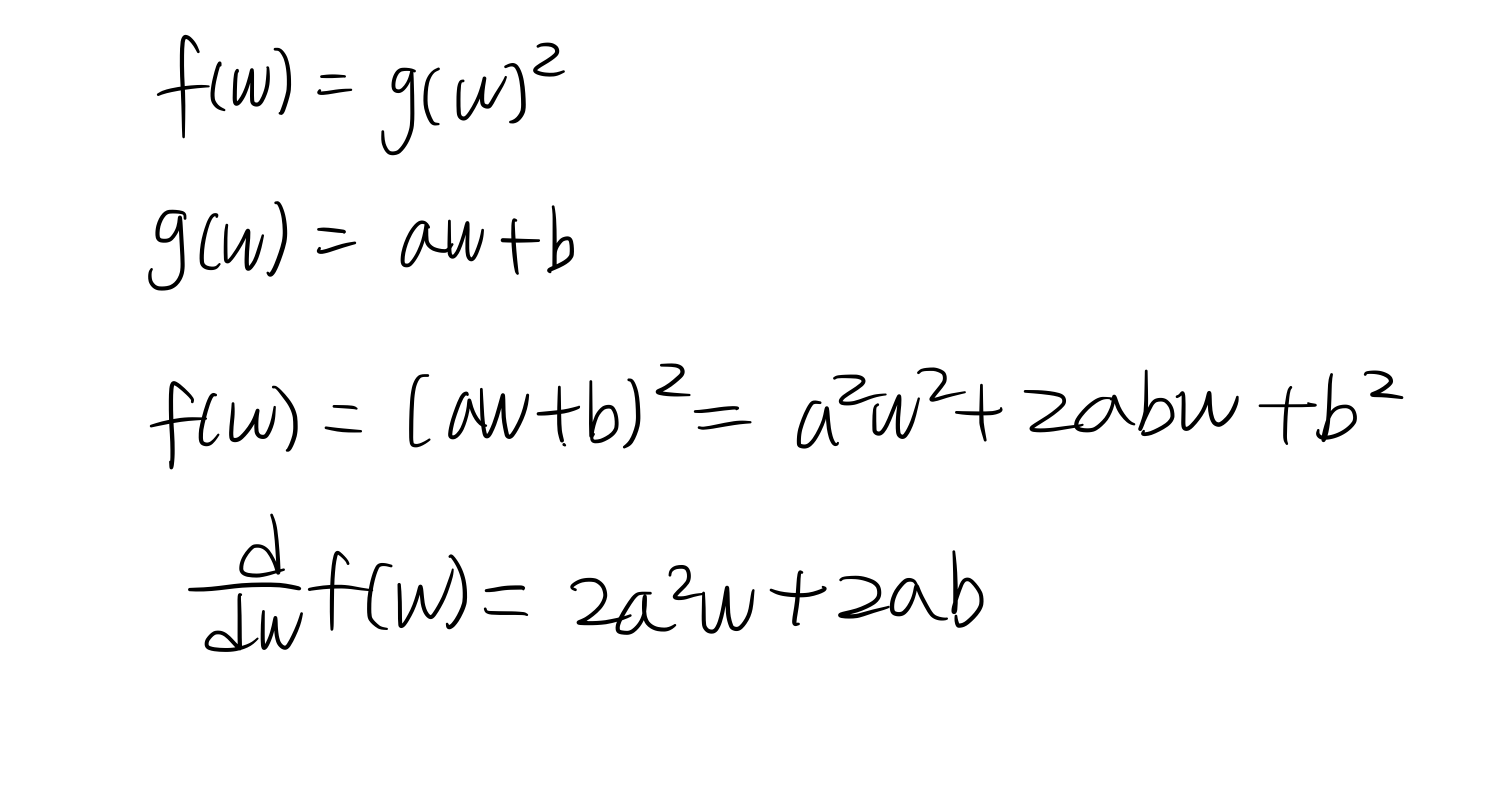 f(w) = g(w)²
g(w) = aw+b
f(w) = (aw+b)² = a²w² + 2abw + b²
d/dw f(w) = 2a²w + 2ab